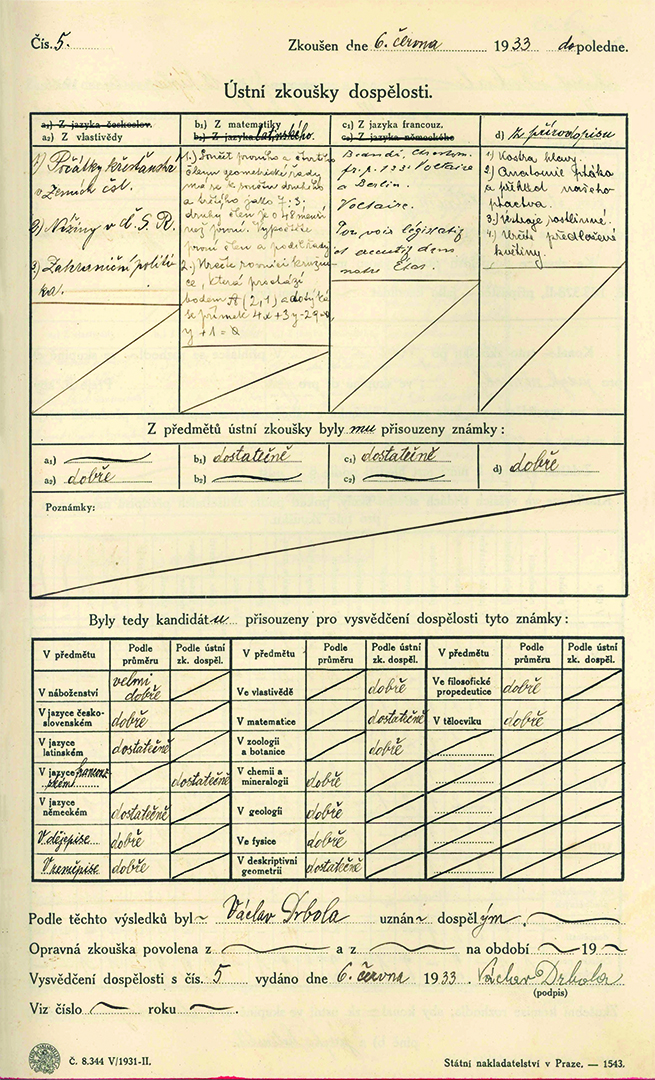 Čís. 5.
Zkoušen dne 6. června 1933 dopoledne.
Ústní zkoušky dospělosti.
a₁) Z jazyka českoslov.
a₂) Z vlastivědy
1) Počátky křesťanska
v Zemích čsl.
2) Nížiny v d. S. R.
3) Zahraniční politi-
ka.
b₁) Z matematiky
b₂) Z jazyka latinského.
1.) Součet prvního a čtvrtého
členu geometrické řady
má se k součtu druhého
a třetího jako 7:3;
druhý člen je o 48 menší
než první. Vypočtěte
první člen a podíl řady.
2.) Určete rovnici kružni-
ce, která prochází
bodem A (2, 1) a dotýká
se přímek 4x+3y-29=0,
y+1=0
c₁) Z jazyka francouz.
c₂) Z jazyka německého
fr. p. 133: Voltaire
a Berlin.
Voltaire.
Pouvoir législatif
et
notre État.
d) Z přírodopisu
1) Kostra hlavy.
2) Anatomie ptáka
a přehled našeho
ptactva.
3.) Ústroje rostlinné.
4.) Určete předložené
květiny.
Z předmětů ústní zkoušky byly mu přisouzeny známky:
a₁)
a₂) dobře
b₁) dostatečně
b₂)
c₁) dostatečně
c₂)
d) dobře
Poznámky:
Byly tedy kandidátu přisouzeny pro vysvědčení dospělosti tyto známky:
V předmětu Podle průměru Podle ústní zk. dospěl. V předmětu Podle průměru Podle ústní zk. dospěl. V předmětu Podle průměru Podle ústní zk. dospěl.
V náboženství velmi dobře Ve vlastivědě dobře Ve filosofické propedeutice dobře
V jazyce česko-slovenském dobře V matematice dostatečně V tělocviku dobře
V jazyce latinském dostatečně V zoologii a botanice dobře
V jazyce francouzském dostatečně V chemii a mineralogii dobře
V jazyce německém dostatečně V geologii dobře
V dějepise dobře Ve fysice dobře
V zeměpise dobře V deskriptivní geometrii dostatečně
Podle těchto výsledků byl Václav Drbola uznán dospělým.
Opravná zkouška povolena z a z na období 19
Vysvědčení dospělosti s čís. 5 vydáno dne 6. června 1933 Václav Drbola
(podpis)
Viz číslo roku .
Č. 8.344 V/1931-II.
Státní nakladatelství v Praze. — 1543.